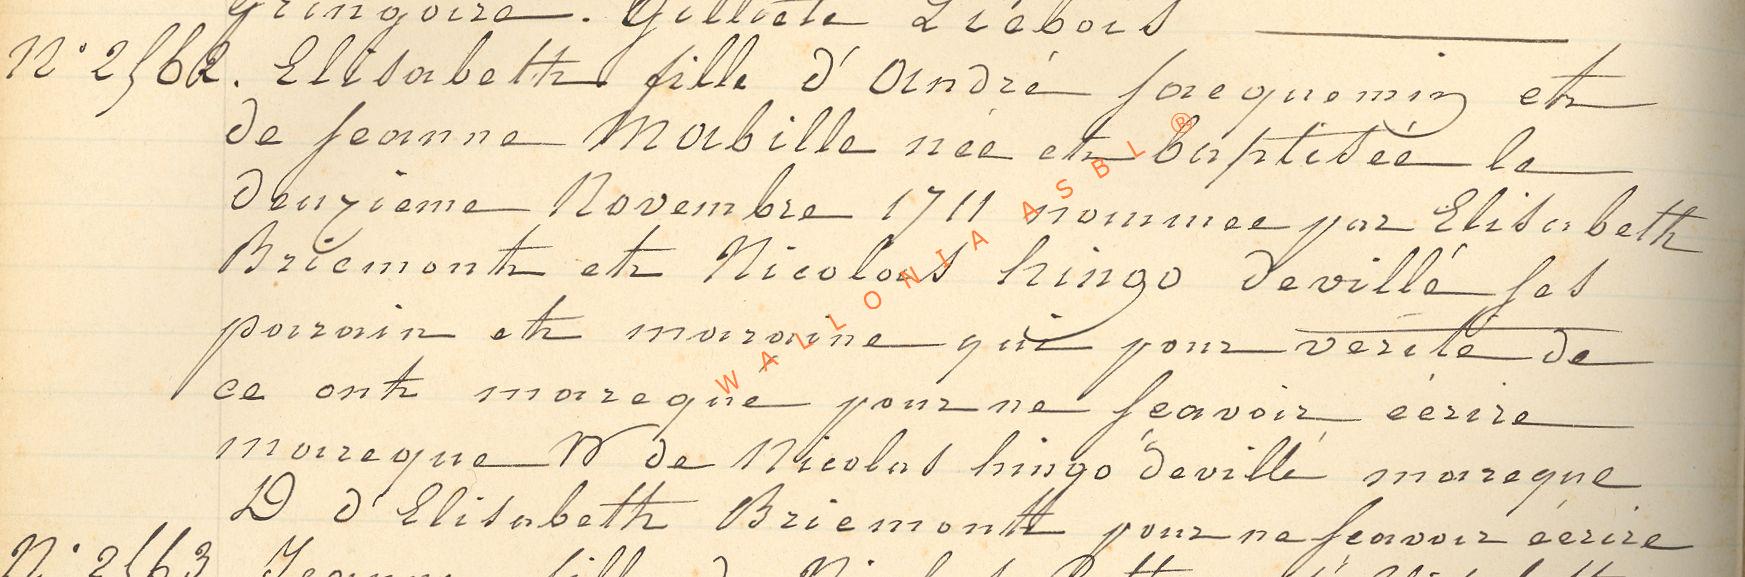 Gringoire. Gillette Liébois
N° 2562. Elisabeth fille d'André jacquemin et
de jeanne Mabille née et baptisée le
deuzieme Novembre 1711 nommee par Elisabeth
Briemont et Nicolas hingo devillé ses
parain et maraine qui pour vérité de
ce ont marcque pour ne sçavoir éérire
marcque N de Nicolas hingo devillé marcque
D d'Elisabeth Briemont pour ne sçavoir éérire
N° 2563 Jeanne fille de Nicolas
WALLONIA ASBL ®